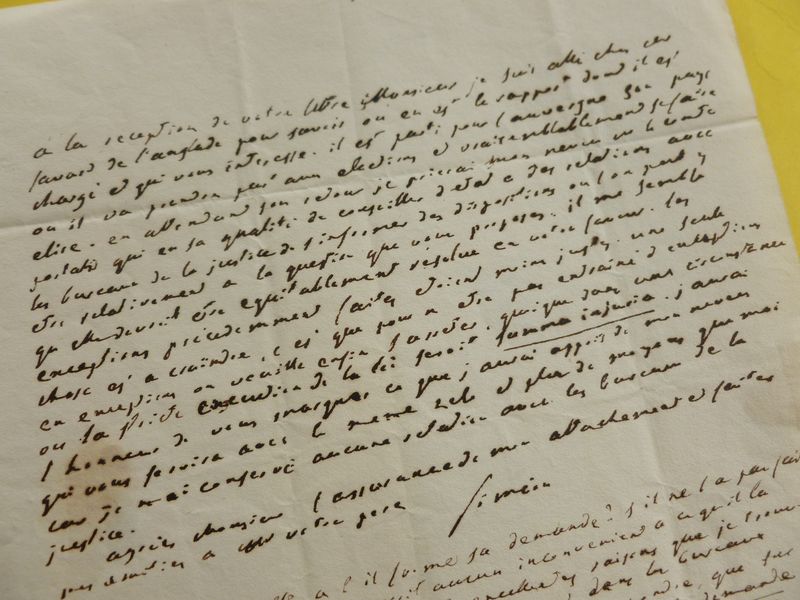 à la réception de votre lettre Monsieur je suis allé chez
favard de l'anglade pour savoir ou en est le rapport dont il est
chargé et qui vous interesse. il est parti pour l'auvergne son pays
ou il va prendre part aux elections et vraisemblablement se faire
elire. en attendant son retour je prierai mon neveu le comte
portalis qui en sa qualité de conseiller d'état a des relations avec
les bureaux de la justice de s'informer des dispositions ou l'on peut y
etre relativement a la question que vous proposez. il me semble
qu'elle devroit etre equitablement resolue en votre faveur. les
exceptions précédemment faites etoient moins justes. une seule
chose est a craindre, c'est que pour n'etre pas entrainé d'exceptions
en exceptions on veuille enfin s'arreter, quoique dans une circonstance
ou la stricte execution de la loi seroit summa injuria. j'aurai
l'honneur de vous marquer ce que j'aurai appris de mon neveu
qui vous servira avec le meme zele et plus de moyens que moi
car je n'ai conservé aucune relation avec les bureaux de la
justice.
agréez Monsieur l'assurance de mon attachement et faites
mes amitiés a votre pere
Siméon
a t'il formé sa demande? s'il ne l'a pas fait
aucun inconvenient a ce qu'il la
raisons que je
dans les bureaux
que
demande